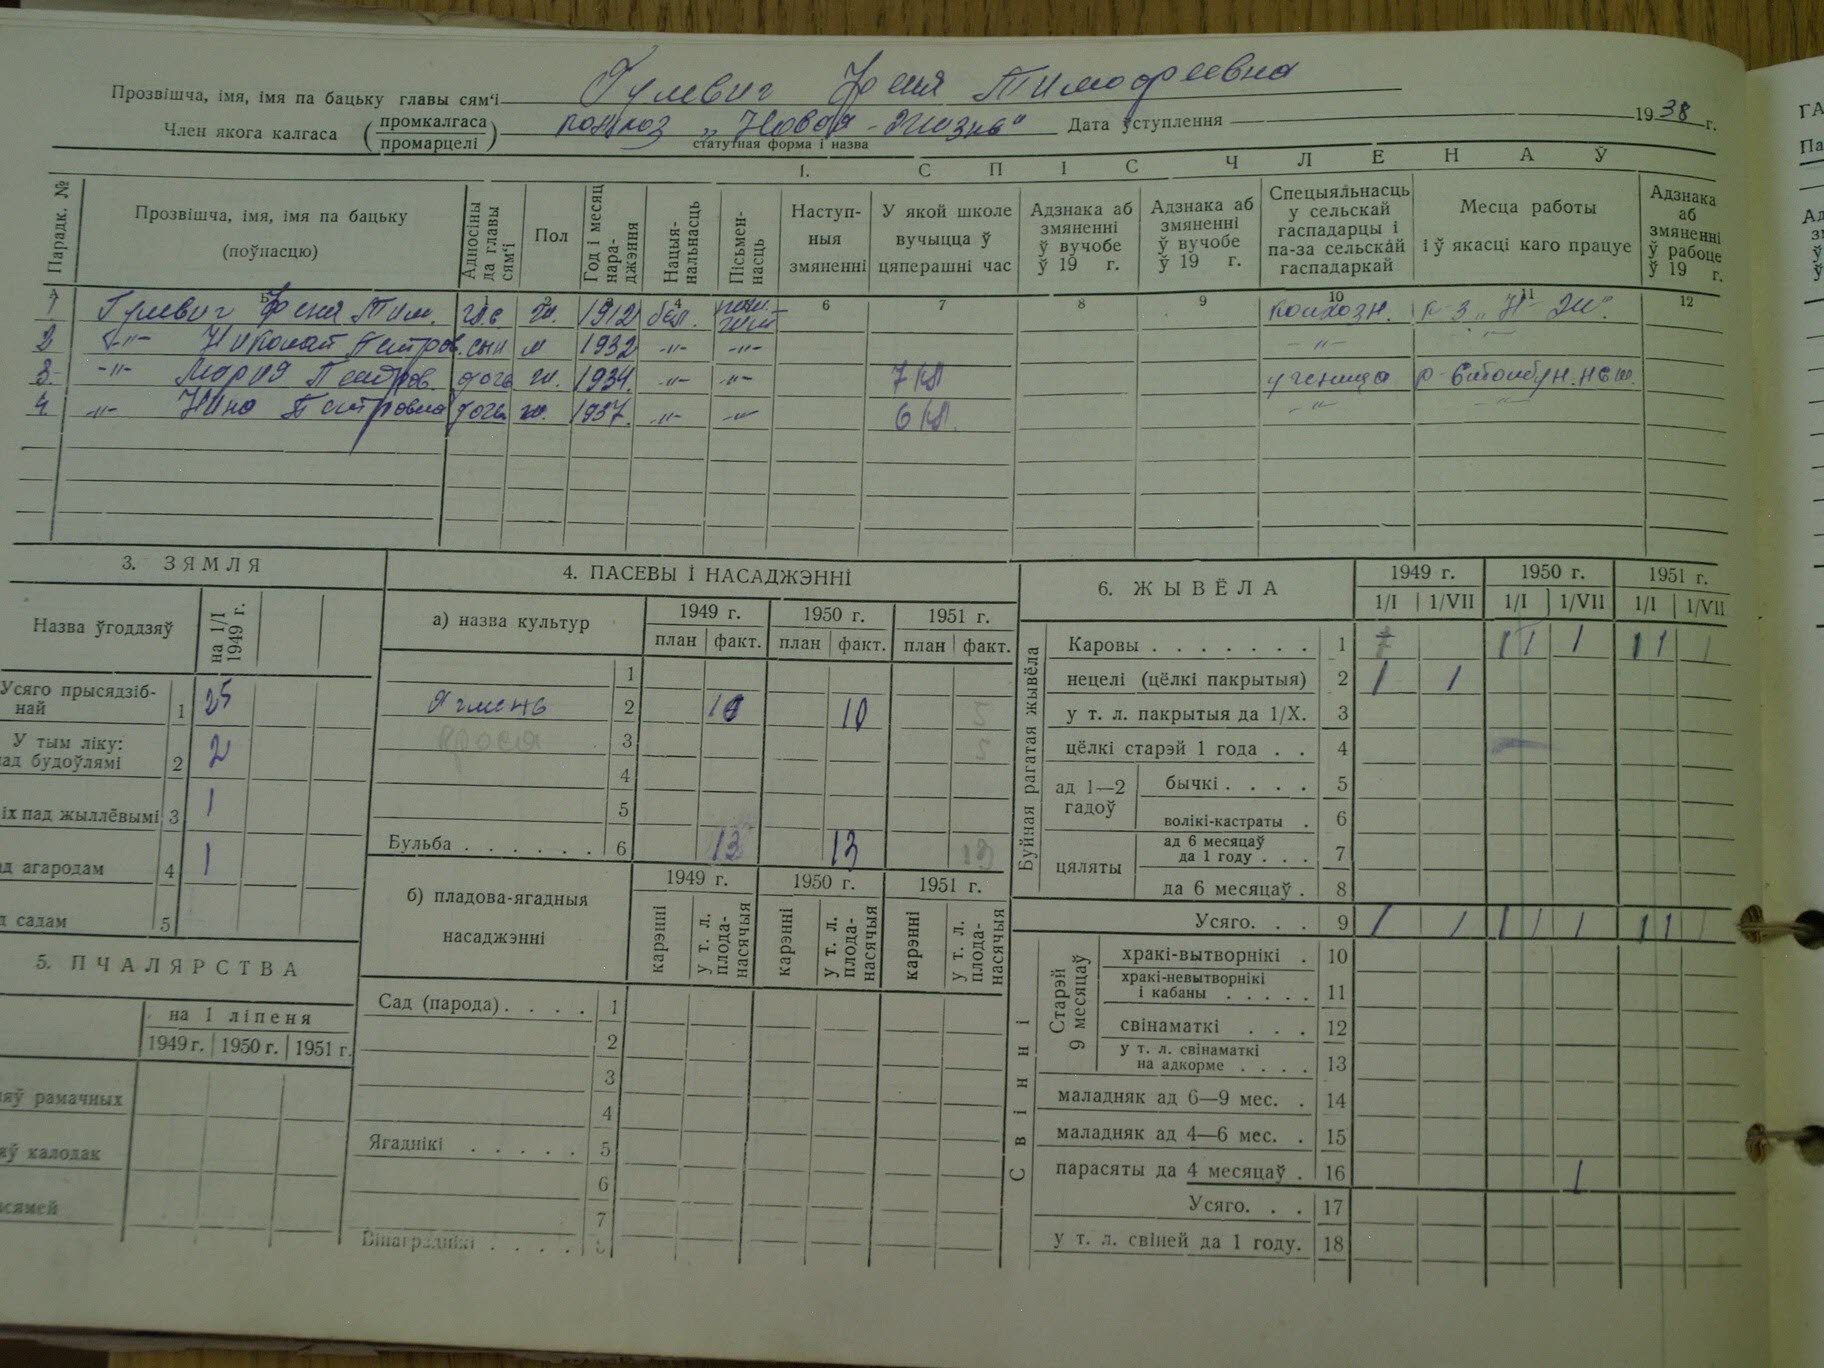 Прозвішча, імя, імя па бацьку главы сям'і Гулевич Феня Тимофеевна
Член якога калгаса (промкалгаса промарцелі) колхоз „Новая-Жизнь“ Дата ўступлення 1938 г.
статутная форма і назва
1. СПІС ЧЛЕНАЎ
Парадк. № | Прозвішча, імя, імя па бацьку (поўнасцю) | Адносіны да главы сям'і | Пол | Год і месяц нараджэння | Нацыянальнасць | Пісьменнасць | Наступныя змяненні | У якой школе вучыцца ў цяперашні час | Адзнака аб змяненні ў вучобе ў 19 г. | Адзнака аб змяненні ў вучобе ў 19 г. | Спецыяльнасць у сельскай гаспадарцы і па-за сельскай гаспадаркай | Месца работы і ў якасці каго працуе | Адзнака аб змяненні ў рабоце ў 19 г.
А Б 1 2 4 6 7 8 9 10 11 12
1 Гулевич Феня Тим. ж. 1912 бел. колхозн. к-з „Н-Ж“
2 -"- Николай Петров. сын м 1932 -"- -"- -"- -"-
3. -"- Мария Петров. дочь ж. 1934. -"- -"- 7 кл ученица
4 -"- Нина Петровна дочь ж. 1937. -"- -"- 6 кл. -"- -"-
3. ЗЯМЛЯ
Назва ўгоддзяў | на 1/I 1949 г.
Усяго прысядзібнай 1 25
У тым ліку: ад будоўлямі 2 2
іх пад жыллёвымі 3 1
д агародам 4 1
д садам 5
5. ПЧАЛЯРСТВА
на 1 ліпеня
1949 г. | 1950 г. | 1951 г.
яў рамачных
яў калодак
сямей
4. ПАСЕВЫ І НАСАДЖЭННІ
а) назва культур | 1949 г. | 1950 г. | 1951 г.
план | факт. | план | факт. | план | факт.
1
Ячмень 2 10 10 5
просо 3 5
4
5
Бульба . . . . . . 6 13 13 13
б) пладова-ягадныя насаджэнні | 1949 г. | 1950 г. | 1951 г.
карэнні | у т. л. плоданасячыя | карэнні | у т. л. плоданасячыя | карэнні | у т. л. плоданасячыя
Сад (парода) . . . . 1
2
3
4
Ягаднікі . . . . . 5
6
7
Вінаграднікі . . . .
6. ЖЫВЁЛА | 1949 г. | 1950 г. | 1951 г.
1/I | 1/VII | 1/I | 1/VII | 1/I | 1/VII
Буйная рагатая жывёла
Каровы . . . . . . . 1 1 1 1 1 1 1
нецелі (цёлкі пакрытыя) 2 1 1
у т. л. пакрытыя да 1/X. 3
цёлкі старэй 1 года . . 4
ад 1—2 гадоў
бычкі . . . . 5
волікі-кастраты . 6
цяляты
ад 6 месяцаў да 1 году . . . 7
да 6 месяцаў . 8
Усяго. . . 9 1 1 1 1 1 1 1 1
Свінні
Старэй 9 месяцаў
хракі-вытворнікі . 10
хракі-невытворнікі і кабаны . . . . . 11
свінаматкі . . . 12
у т. л. свінаматкі на адкорме . . . . 13
маладняк ад 6—9 мес. . 14
маладняк ад 4—6 мес. . 15
парасяты да 4 месяцаў . 16 1
Усяго. . . 17
у т. л. свіней да 1 году. 18
ГА
Па